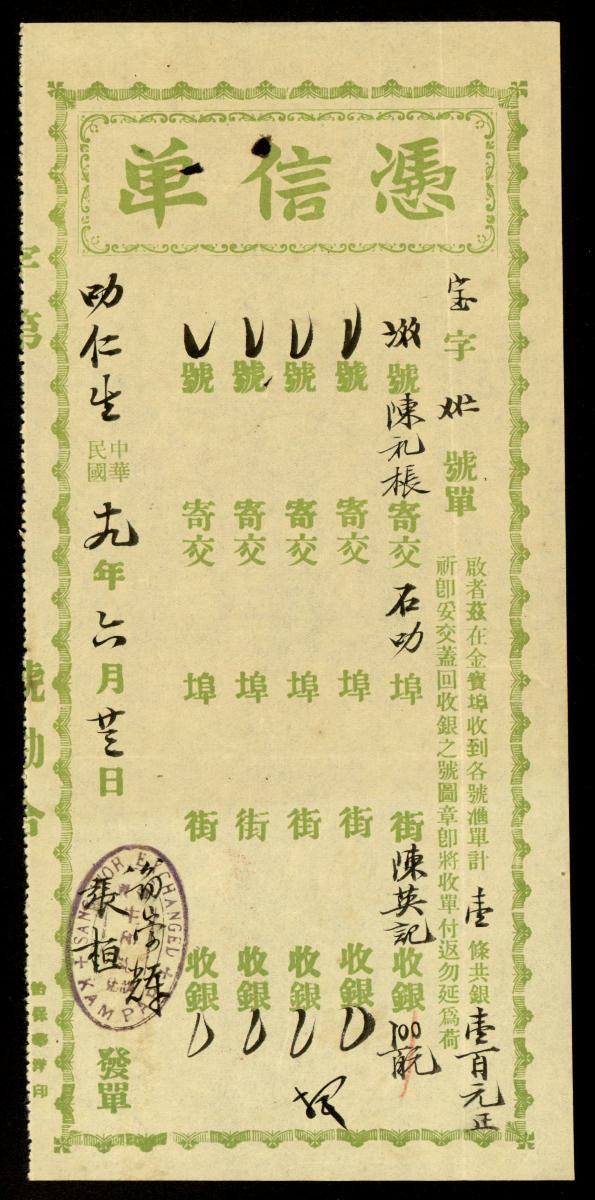 憑信单
宝字 號單
啟者茲在金寶埠收到各號滙單計壹條共銀壹百元正
祈卽妥交蓋回收銀之號圖章卽將收單付返勿延爲荷
號陳礼根寄交石叻埠 街陳英記收銀100百元
號 寄交 埠 街 收銀
號 寄交 埠 街 收銀
號 寄交 埠 街 收銀
號 寄交 埠 街 收銀
叻仁生
中華民國十九年六月廿三日
張桓
發單
EXCHANGED
KAMPAR
字第 號勘合